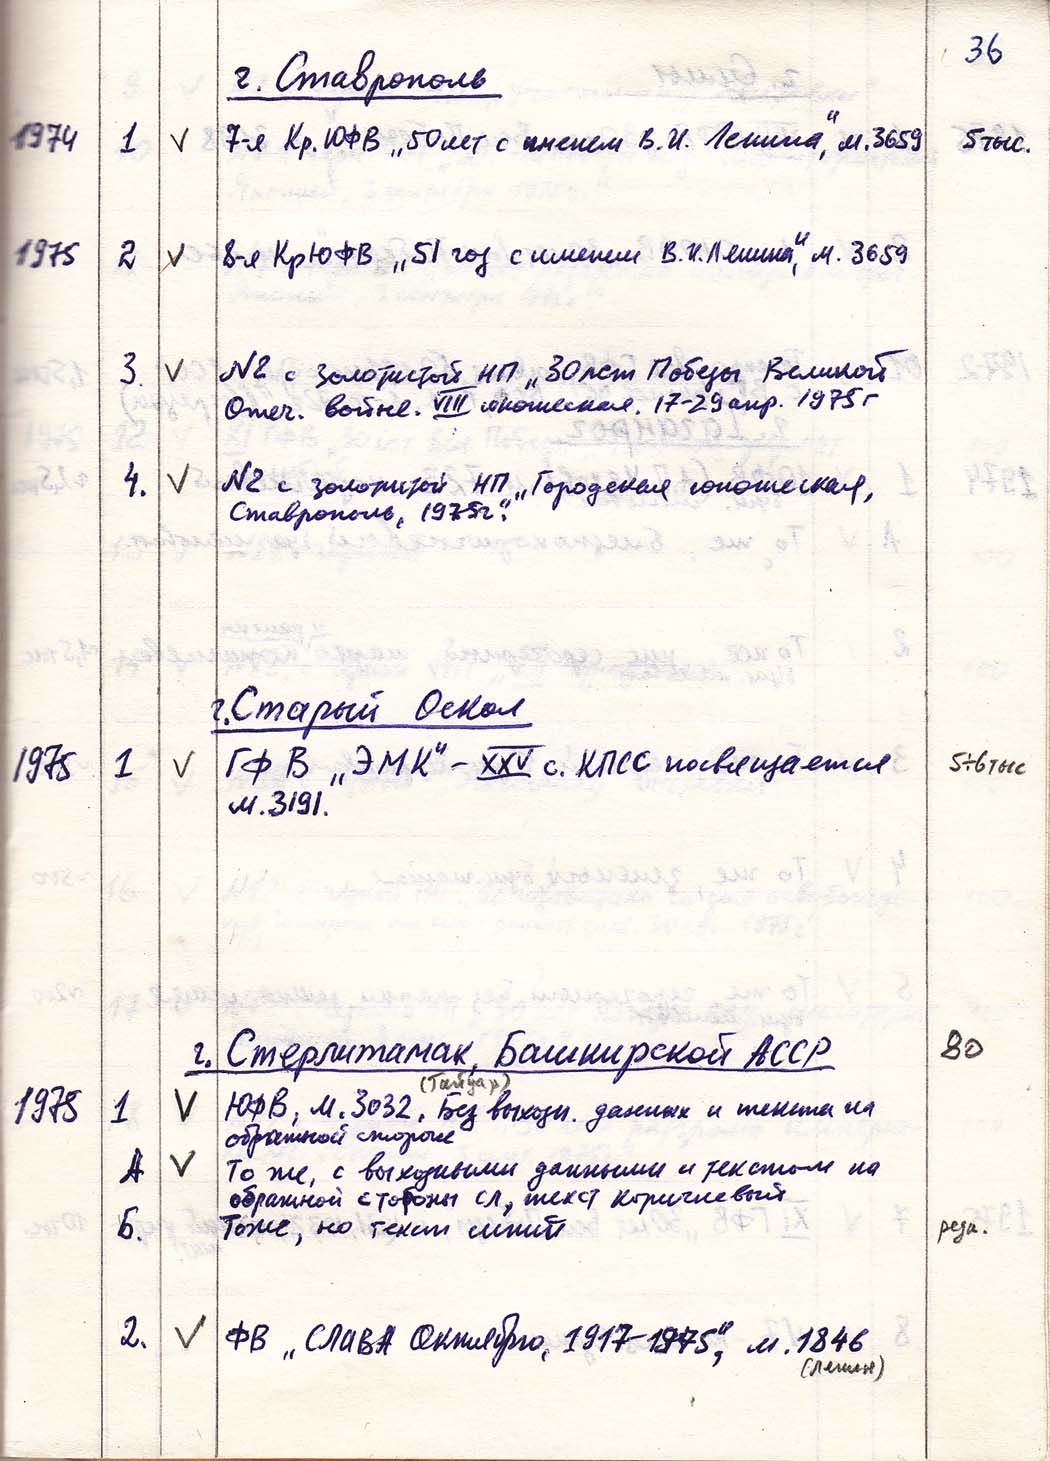 36
г. Ставрополь
1974 1 V 7-я Кр. ЮФВ „50 лет с именем В. И. Ленина", м. 3659 5 тыс.
1975 2 V 8-я Кр ЮФВ „51 год с именем В. И. Ленина", м. 3659
3. V №2 с золотистой НП „30 лет Победы Великой
Отеч. войне. VIII юношеская. 17-29 апр. 1975 г
4. V №2 с золотистой НП „Городская юношеская,
Ставрополь, 1975г".
г. Старый Оскол
1975 1 V ГФВ „ЭМК" - XXV с. КПСС посвящается 5÷6 тыс
м. 3191.
г. Стерлитамак, Башкирской АССР 80
(Гайдар)
1975 1 V ЮФВ, м. 3032. Без выходн. данных и текста на
обратной стороне
А V То же, с выходными данными и текстом на
обратной стороны сл, текст коричневый
Б. Тоже, но текст синий редк.
2. V ФВ „СЛАВА Октябрю, 1917-1975", м. 1846
(Ленин)